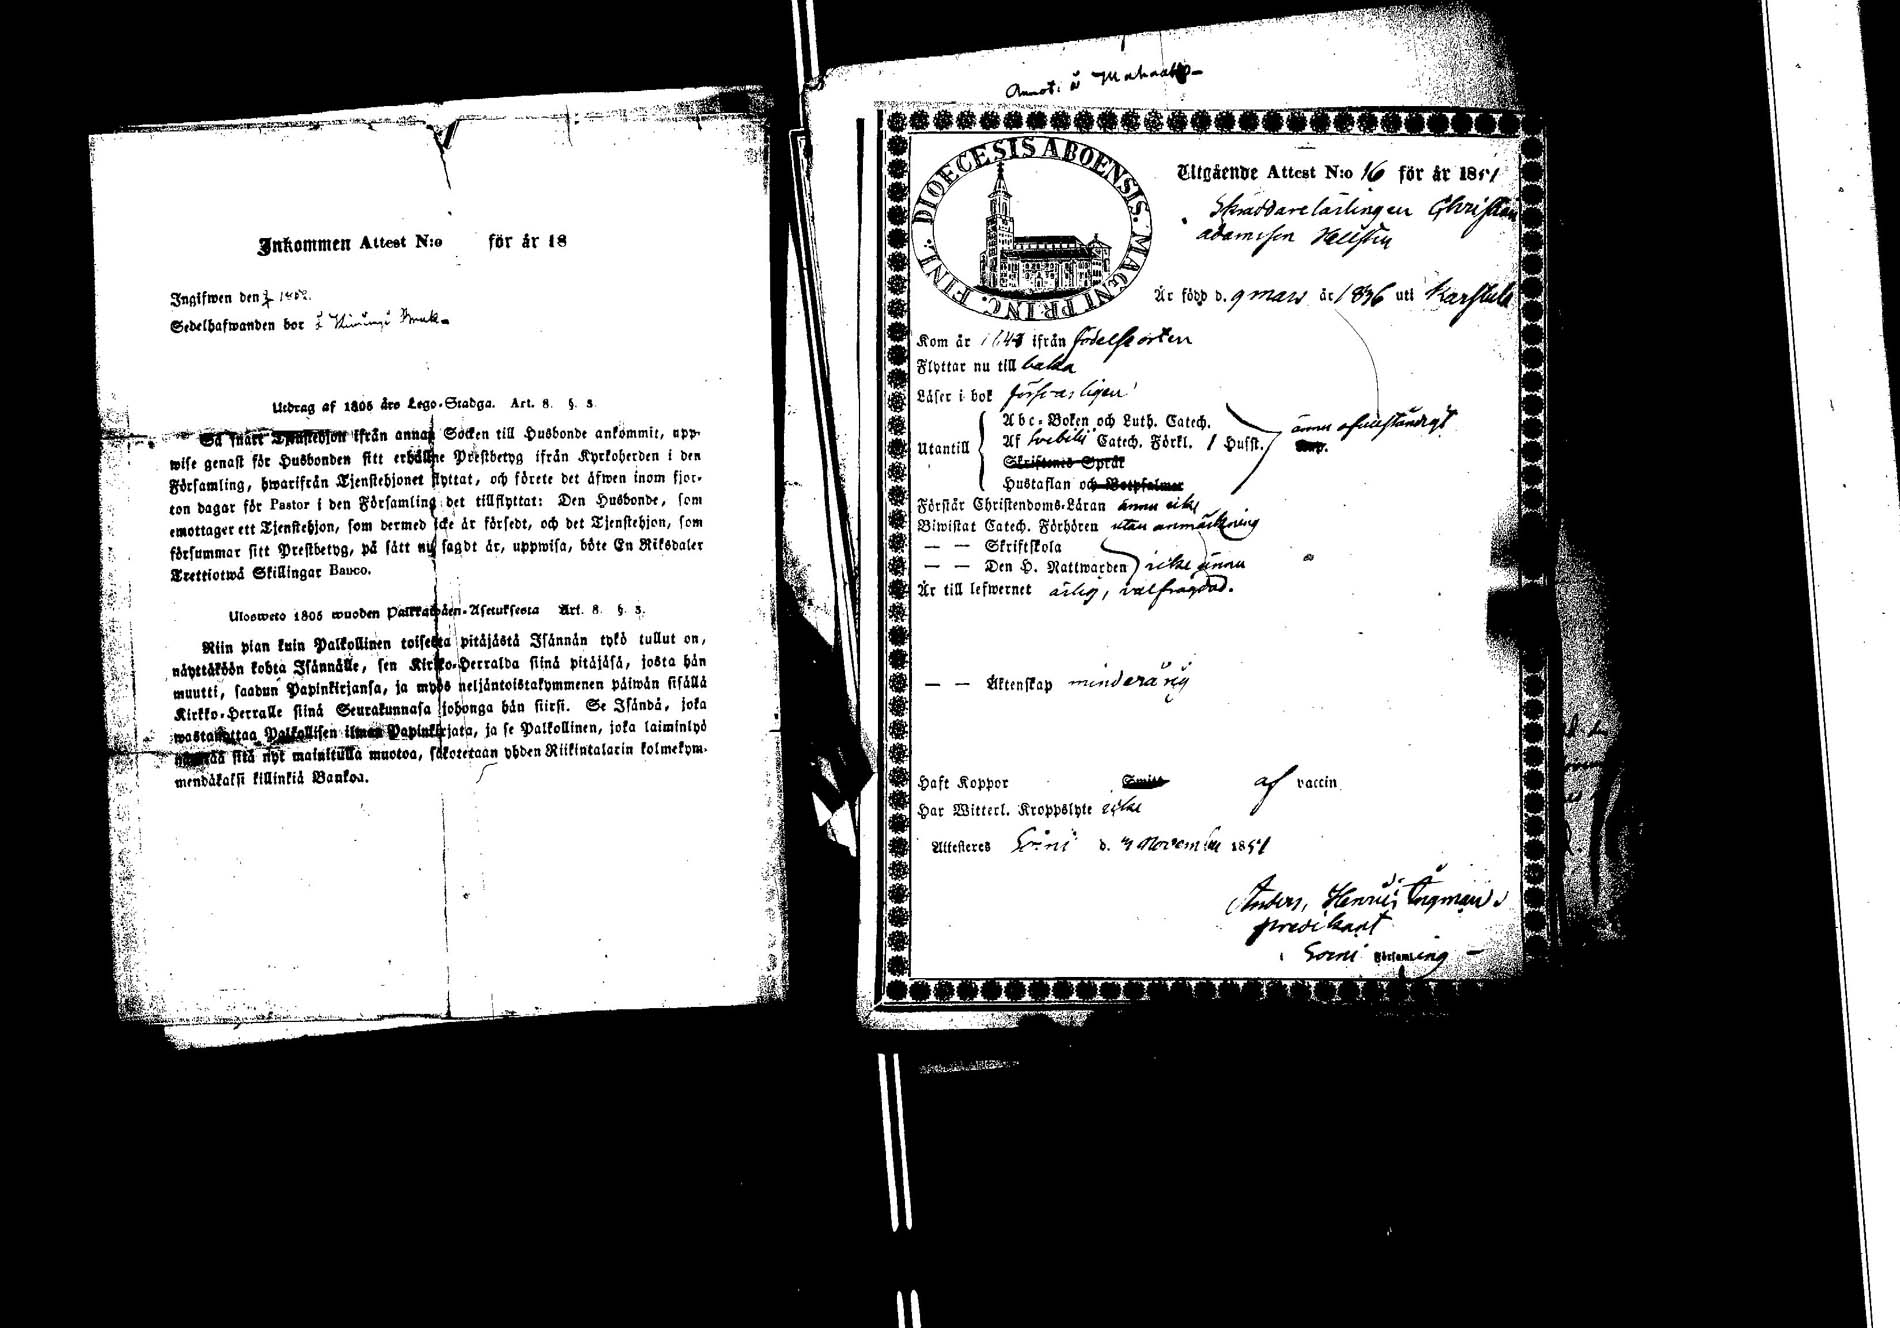 Inkommen Attest N:o för år 18
Ingifwen den
Sedelhafwanden bor
Utdrag af 1805 års Lego-Stadga. Art. 8. §. 3.
Så snart Tjenstehjon ifrån annan Socken till Husbonde ankommit, upp-
wise genast för Husbonden sitt erhållne Prestbetyg ifrån Kyrkoherden i den
Församling, hwarifrån Tjenstehjonet flyttat, och förete det äfwen inom fjor-
ton dagar för Pastor i den Församling det tillflyttat: Den Husbonde, som
emottager ett Tjenstehjon, som dermed icke är försedt, och det Tjenstehjon, som
försummar sitt Prestbetyg, på sätt nu sagdt är, uppwisa, böte En Riksdaler
Trettiotwå Skillingar Banco.
Ulosweto 1805 wuoden Palkkawäen-Asetuksesta Art. 8. §. 3.
Niin pian kuin Palkollinen toisesta pitäjästä Isännän tykö tullut on,
näyttäköön kohta Isännälle, sen Kirkko-Herralda siinä pitäjäsä, josta hän
muutti, saadun Papinkirjansa, ja myös neljäntoistakymmenen päiwän sisällä
Kirkko-Herralle siinä Seurakunnasa johonga hän siirsi. Se Isändä, joka
wastanottaa Palkollisen ilman Papinkirjata, ja se Palkollinen, joka laiminlyö
sitä nyt mainitulla muotoa, sakotetaan yhden Riikintalarin kolmekym-
mendäkaksi killinkiä Bankoa.
Annot: i
DIOECESIS ABOENSIS. MAGNI PRINC. FINL.
Utgående Attest N:o 16 för år 1851
Skräddarelärlingen Christian
Adamsson Hellsten
Är född d. 9 mars år 1836 uti Karstula
Kom år 1643 ifrån födelseorten
Flyttar nu till baka
Läser i bok försvarligen
Utantill
Abc-Boken och Luth. Catech.
Af Svebilii Catech. Förkl. / Husst.
ännu ofullständigt
Skriftenes Språk
Hustaflan och Botpsalmer
Förstår Christendoms-Läran ännu icke
Biwistat Catech. Förhören utan anmärkning
— — Skriftskola
— — Den H. Nattwarden icke ännu
Är till lefwernet ärlig, välfrägdad.
— — Äktenskap minderårig
Haft Koppor af vaccin
Har Witterl. Kroppslyte icke
Attesteras Soini d. 4 November 1851
Anders Henric Ingman
predikant
i Soini Församling